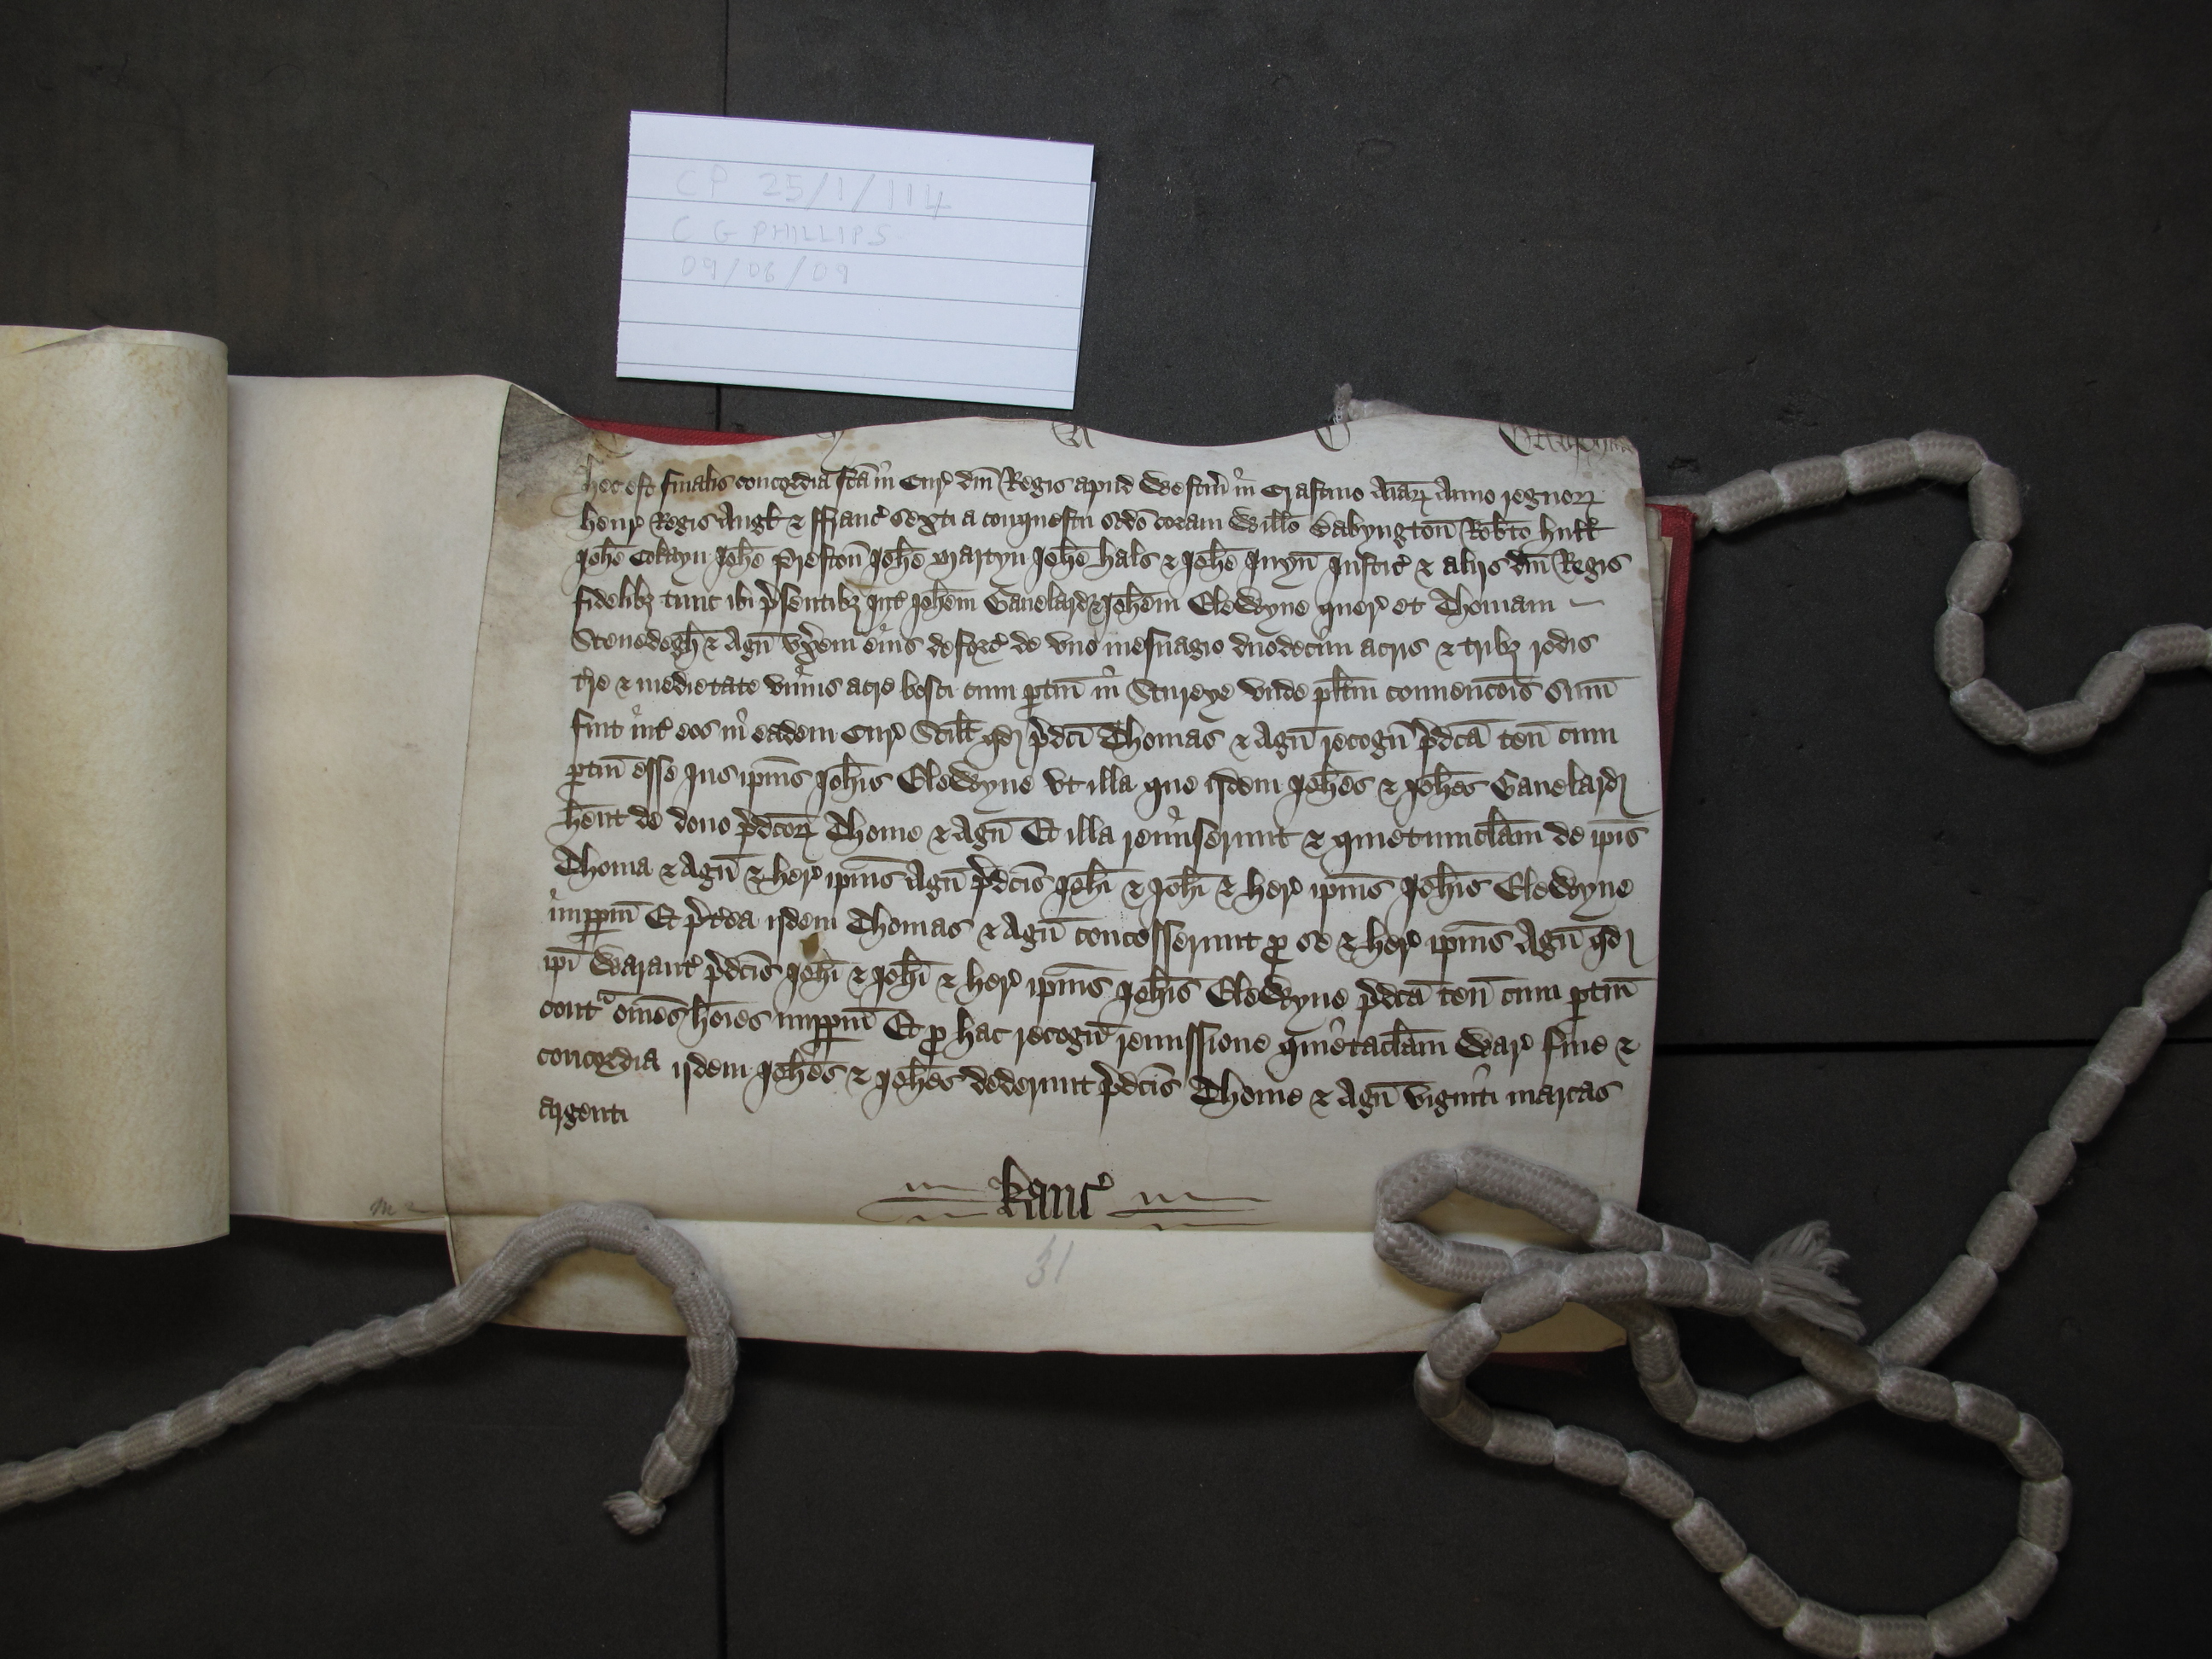 CP 25/1/114
C G PHILLIPS
09/06/09
Hec est finalis concordia fc̄a in Cur̛ dn̄i Regis apud Westm̄ in Crastino Aīaꝝ Anno regnoꝝ
Henr̛ Regis Angƚ & ffranc̛ sexti a conquestu scd̄o coram Wiƚƚo Babyngton̄ Rob̄to Huƚƚ
Joh̄e Cokayn Joh̄e Preston̄ Joh̄e Martyn Joh̄e Hals & Joh̄e Juyn̄ Justic̛ & aliis dn̄i Regis
fidelibꝫ tunc ibi p̛sentibꝫ Int̛ Joh̄em Gauelard & Joh̄em Elewyne quer̛ et Thomam
Stonedegh̄ & Agn̄ vx̛em eius deforc̛ de vno mesuagio duodecim acris & tribꝫ rodis
t̛re & medietate vnius acre bosci cum ptin̄ in Stureye vnde pƚitm conuencōis sum̄
fuit int̛ eos in eadem Cur̛ Sciƚt qd̛ p̛dc̄i Thomas & Agn̄ recogn̄ p̛dc̄a ten̄ cum
ꝑtin̄ esse Jus ip̄ius Joh̄is Elewyne vt illa que iidem Joh̄es & Joh̄es Gauelard
h̄ent de dono p̛dc̄oꝝ Thome & Agn̄ Et illa remiserunt & quietumclam̄ de ip̄is
Thoma & Agn̄ & her̛ ip̄ius Agn̄ p̛dc̄is Joh̄i & Joh̄i & her̛ ip̄ius Joh̄is Elewyne
imꝑꝑm̄ Et p̛t̛ea iidem Thomas & Agn̄ concesserunt ꝓ se & her̛ ip̄ius Agn̄ qd̛
ip̄i Warant̛ p̛dc̄is Joh̄i & Joh̄i & her̛ ip̄ius Joh̄is Elewyne p̛dc̄a ten̄ cum ꝑtin̄
contᵃ om̄es h̄oies imꝑꝑm̄ Et ꝓ hac recogn̄ remissione quietaclam̄ War̛ fine &
concordia iidem Joh̄es & Joh̄es dederunt p̛dc̄is Thome & Agn̄ viginti marcas
argenti
Kanc̛
m 2
31